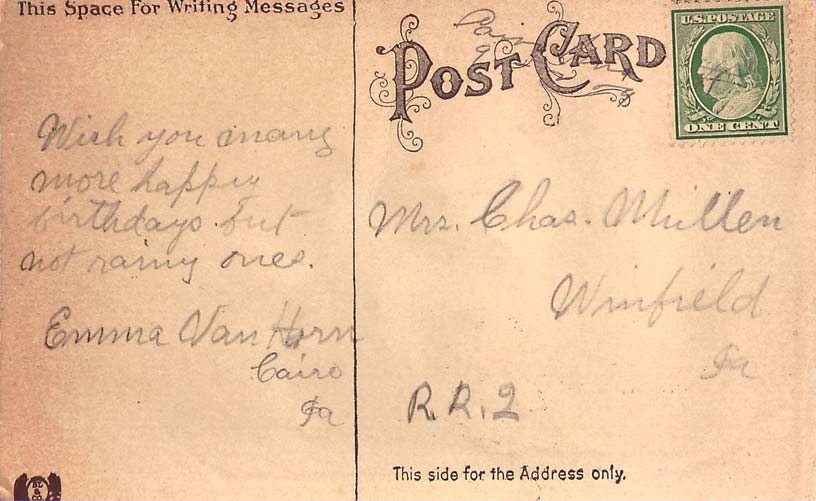 This Space For Writing Messages
POST CARD
U.S. POSTAGE
ONE CENT
Wish you many
more happy
birthdays but
not rainy ones.
Emma Van Horn
Cairo
Ia
Mrs. Chas. Mullen
Winfield
Ia
R.R.2
This side for the Address only.